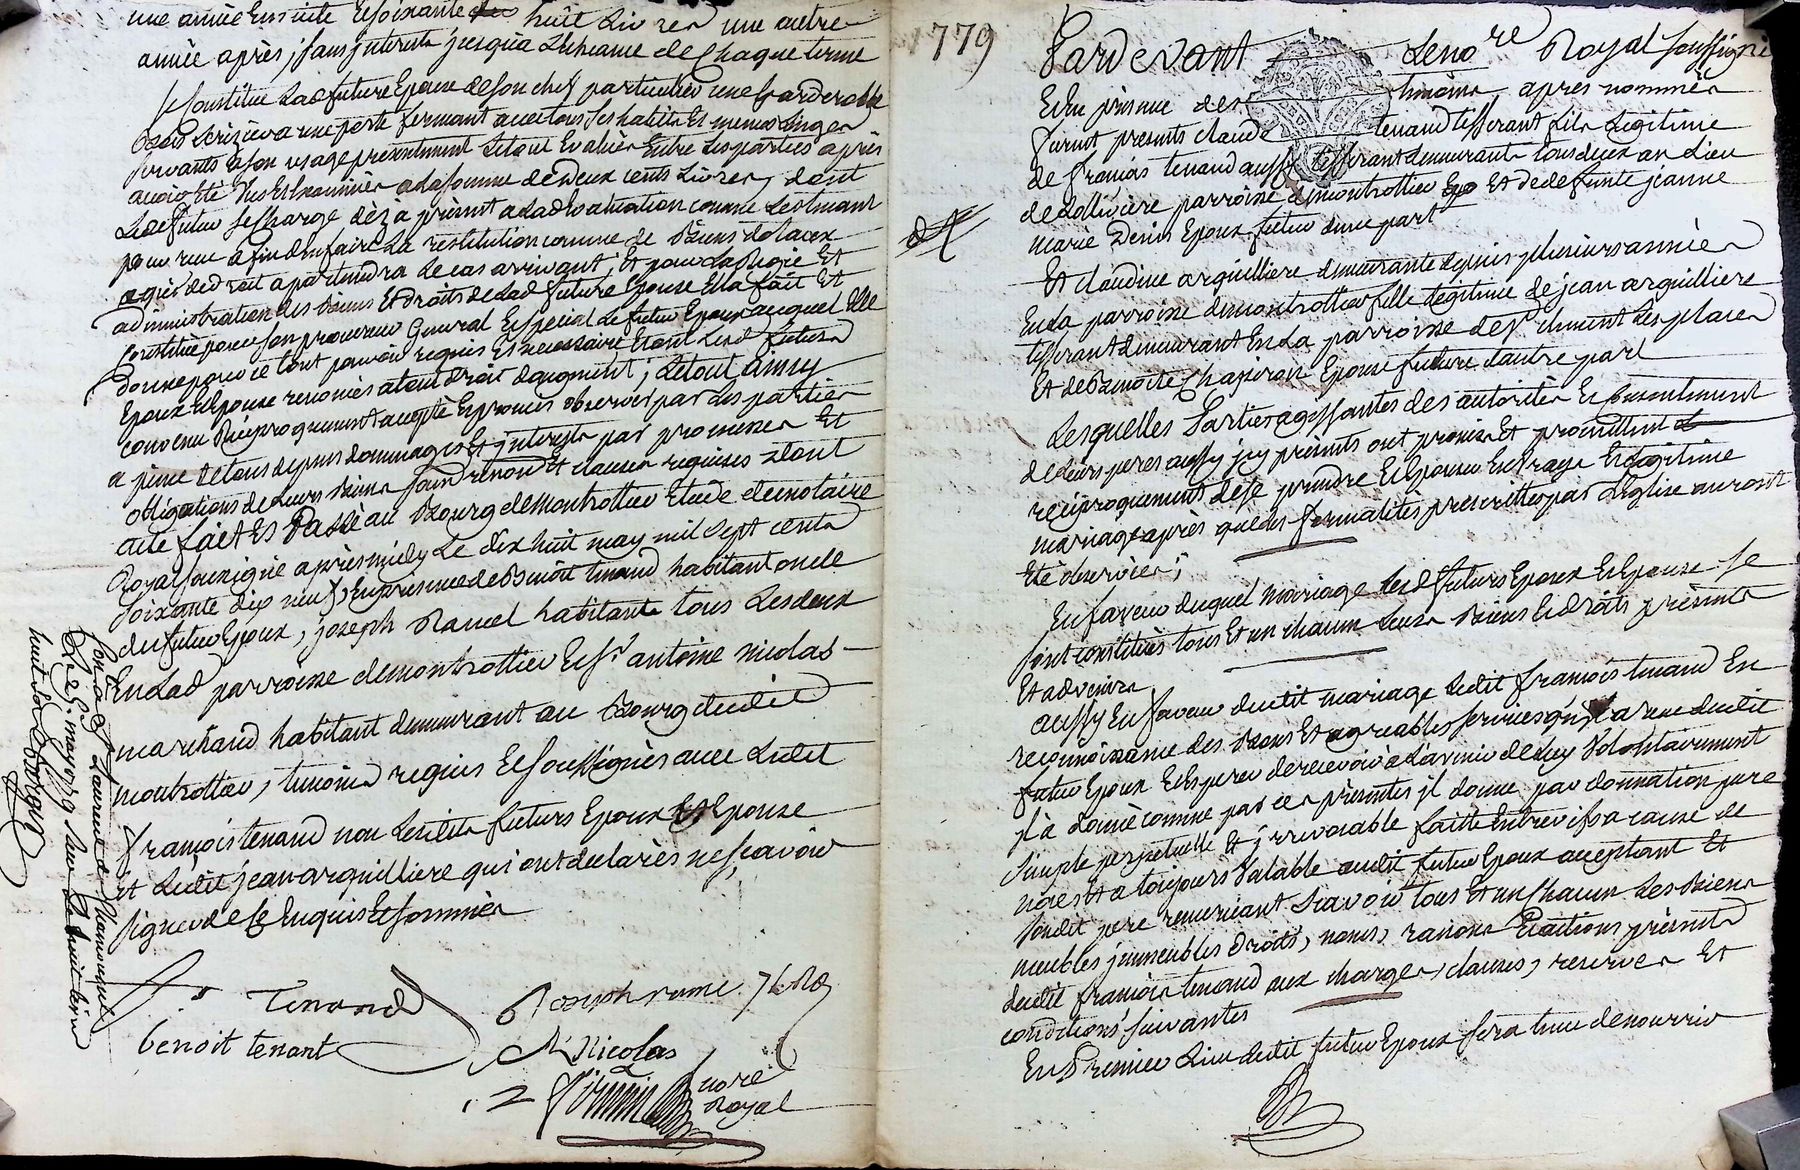 une année Ensuite Et soixante huit Livres une autre
année après, sans interests jusqu'a L'Echeance de Chaque terme
Se Constitue Lad future Epouse de son chef particulier une Garderobbe
bois Cerizier a une porte fermant avec tous ses habits Et menus Linges
servants a son usage presentement Le tout Evalué Entre Les parties après
avoir été vus Et Examinés a La somme de Deux cents Livres, dont
Led futur se charge dès a présent a Lad Evaluation comme
pour reue a fin d'en faire La restitution comme de Biens
a qui de droit apartiendra Le cas arrivant, Et pour La Régie Et
administration des Biens Et droits de Lad future Epouse Elle a fait Et
constitué pour son procureur General Et special Le futur Epoux auquel Elle
donne pour ce tout pouvoir requis Et necessaire, Et ont Lesd futurs
Epoux Et Epouse renoncés a tout droit d'augment ; Le tout ainsy
convenu Réciproquement accepté Et promis observer par Les parties
a peine de tous depens dommages Et interests par promesses Et
obligations de Leurs Biens soumd renond Et clauses requises dont
acte fait Et Passé au Bourg de Montrottier Etude du notaire
Royal soussigné après midy Le dix huit may mil sept cents
soixante dix neuf, En presence de Benoit tenaud habitant oncle
du futur Epoux, joseph Ramel habitants tous Les deux
En Lad parroisse de montrottier Et sr antoine nicolas
marchand habitant demeurant au Bourg dudit
montrottier, temoins requis Et soussignés avec Ledit
françois tenaud non Lesdits futurs Epoux Et Epouse
et Ledit jean arguilliere qui ont declarés ne sçavoir
signer de ce Enquis Et sommés
Tenaud Joseph rame
benoit tenant A Nicolas
nore
Royal
Con a St Laurent de Chamousset
Le 25 may 1779 Reçu
huit sols
1779
Pardevant Le nore Royal soussigné
Et En présence des temoins après nommés
furent presents claude tenaud tisserant fils Légitime
de françois tenaud aussy tisserant demeurants tous deux au Lieu
de Lolliviere parroisse de montrottier Et de defunte jeanne
marie Denis Epoux futur d'une part
Et claudine arguilliere demeurante depuis plusieurs années
En La parroisse de montrottier fille légitime de jean arguilliere
tisserant demeurant En La parroisse de St clement Les places
Et de Benoite Chapiron Epouse future d'autre part
Lesquelles Parties agissantes des autorités Et consentement
de Leurs peres aussy icy présents ont promis Et promettent
reciproquement de se prendre Et Epouser En vraye Et Légitime
mariage après que les formalités prescrittes par L'Eglise auront
Eté observées ;
En faveur duquel mariage Lesd futurs Epoux Et Epouse se
sont constitués tous Et un chacun Leurs Biens Et droits présents
Et advenirs
aussy En faveur dudit mariage Ledit françois tenaud En
reconnoissance des Bons Et agreables services qu'il a reçue dudit
futur Epoux Et Esperer de recevoir à L'avenir de Luy Volontairement
il a donné comme par ces présentes il donne par donnation pure
simple perpetuelle Et irrevocable faitte Entre vifs a cause de
noces Et a toujours Valable audit futur Epoux acceptant Et
sondit pere remerciant Sçavoir tous Et un Chacun Les Biens
meubles immeubles droits, noms, raisons Et actions présents
dudit françois tenaud aux charges, clauses, reserves Et
conditions suivantes
En Premier Lieu Ledit futur Epoux sera tenu de nourrir